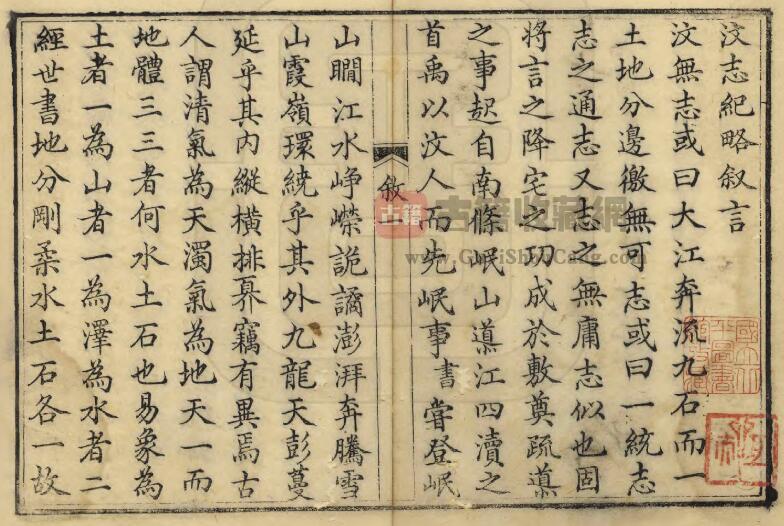 汶志紀略叙言
汶無志或曰大江奔流九石而一
土地分邊徼無可志或曰一統志
志之通志又志之無庸志似也固
將言之降宅之功成於敷奠疏導
之事起自南條岷山導江四瀆之
首禹以汶人而先岷事書嘗登岷
敘一
山瞷江水崢嶸詭譎澎湃奔騰雪
山霞嶺環繞乎其外九龍天彭蔓
延乎其内縱橫排奡竊有異焉古
人謂清氣為天濁氣為地天一而
地體三三者何水土石也易象為
土者一為山者一為澤為水者二
經世書地分剛柔水土石各一故
古籍
古籍收藏網